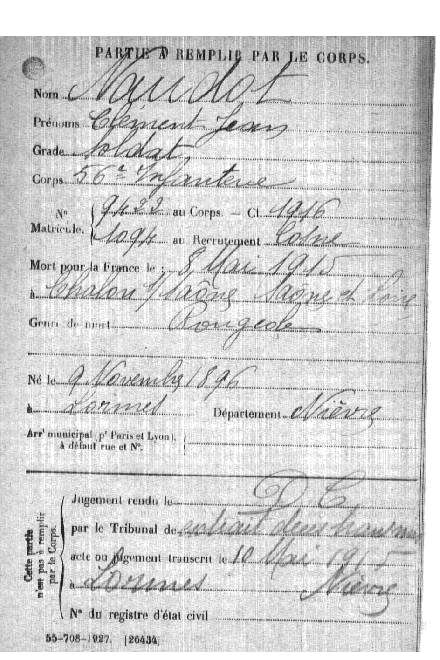 PARTIE À REMPLIR PAR LE CORPS.
Nom Naudot
Prénoms Clément Jean
Grade Soldat
Corps 56e Infanterie
N° 9422 au Corps. — Cl. 1916
Matricule. 1094 au Recrutement Cosne
Mort pour la France le : 8 Mai 1915
à Chalon s/Saône Saône et Loire
Genre de mort Rougeole
Né le 9 Novembre 1896
à Lormes Département Nièvre
Arrt municipal (pr Paris et Lyon),
à défaut rue et N°.
Cette partie
n'est pas à remplir
par le Corps.
Jugement rendu le D C
par le Tribunal de extrait
acte ou jugement transcrit le 10 Mai 1915
à Lormes Nièvre
N° du registre d'état civil
55-708-1927. [26434]